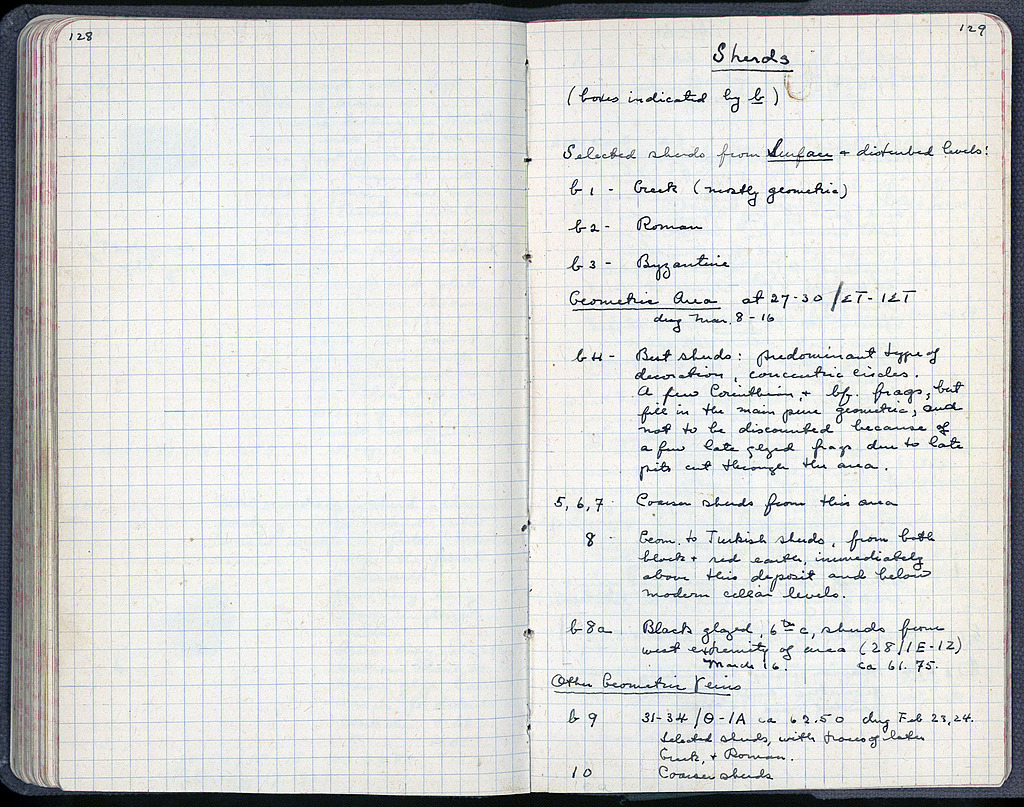 128
129
Sherds
(boxes indicated by b)
Selected sherds from Surface + disturbed levels:
b 1 - Greek (mostly geometric)
b 2 - Roman
b 3 - Byzantine
Geometric Area at 27-30 / ΣΤ - 1ΣΤ
dug Mar. 8-16
b 4 - Best sherds: predominant type of
decoration, concentric circles.
A few Corinthian, + bf. frags, but
fill in the main pure geometric, and
not to be discounted because of
a few late glzed frags due to late
pits cut through the area.
5, 6, 7 - Coarser sherds from this area
8 - Geom. to Turkish sherds, from both
black + red earth, immediately
above this deposit and below
modern cellar levels.
b 8a Black glzed, 6th c, sherds from
west extremity of area (28/1E-1Z)
March 16. ca 61.75.
Other Geometric Veins
b 9 31-34/Θ-1A ca 62.50 dug Feb 23, 24.
Selected sherds, with traces of later
Greek, + Roman.
10 Coarser sherds